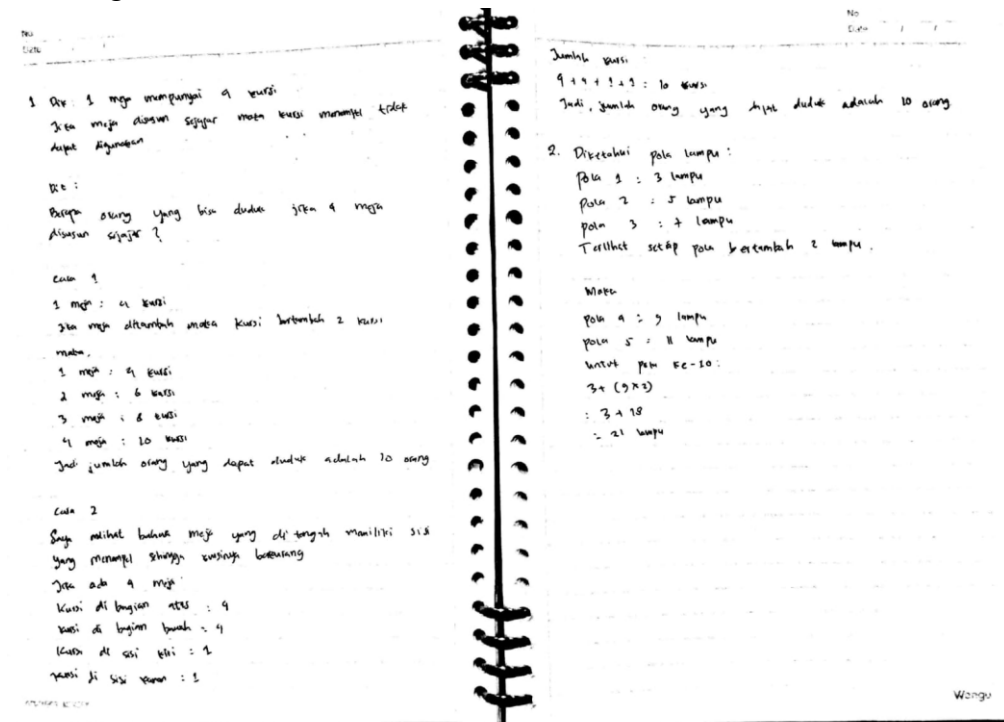 No
Date
1 Dik : 1 meja mempunyai 4 kursi
Jika meja disusun sejajar maka kursi menempel tidak
dapat digunakan
Dit :
Berapa orang yang bisa duduk jika 4 meja
disusun sejajar ?
Cara 1
1 meja : 4 kursi
Jika meja ditambah maka kursi bertambah 2 kursi
maka,
1 meja : 4 kursi
2 meja : 6 kursi
3 meja : 8 kursi
4 meja : 10 kursi
Jadi jumlah orang yang dapat duduk adalah 10 orang
Cara 2
Saya melihat bahwa meja yang di tengah memiliki sisi
yang menempel sehingga kursinya berkurang
Jika ada 4 meja :
Kursi di bagian atas : 4
kursi di bagian bawah : 4
Kursi di sisi kiri : 1
kursi di sisi kanan : 1
No
Date / /
Jumlah kursi
4 + 4 + 1 + 1 : 10 kursi
Jadi, jumlah orang yang dapat duduk adalah 10 orang
2. Diketahui pola lampu :
Pola 1 : 3 lampu
Pola 2 : 5 lampu
pola 3 : 7 lampu
Terlihat setiap pola bertambah 2 lampu.
Maka
pola 4 : 9 lampu
pola 5 : 11 lampu
untuk pola ke-10 :
3 + (9 x 2)
: 3 + 18
= 21 lampu